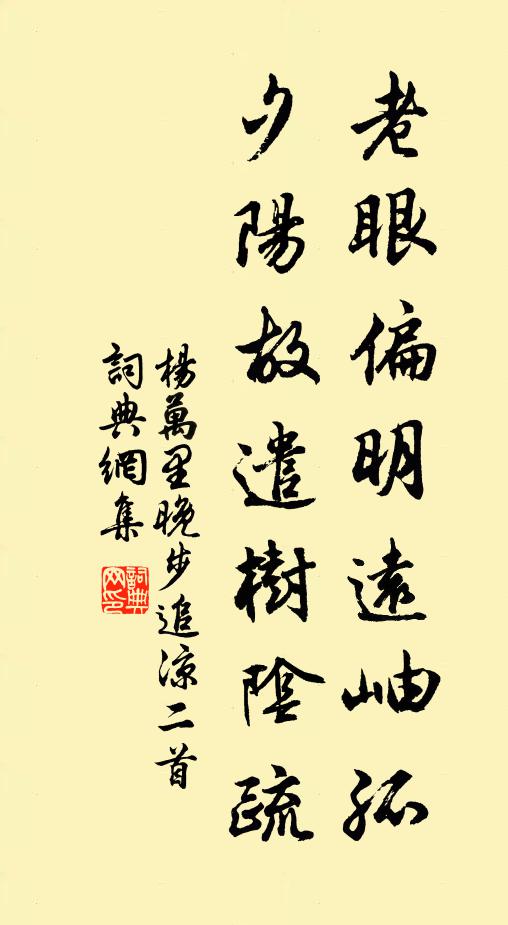 老眼偏明遠岫孤
夕陽故遣樹陰疏
楊萬里晚步追涼二首
詞典網集
詞典網印